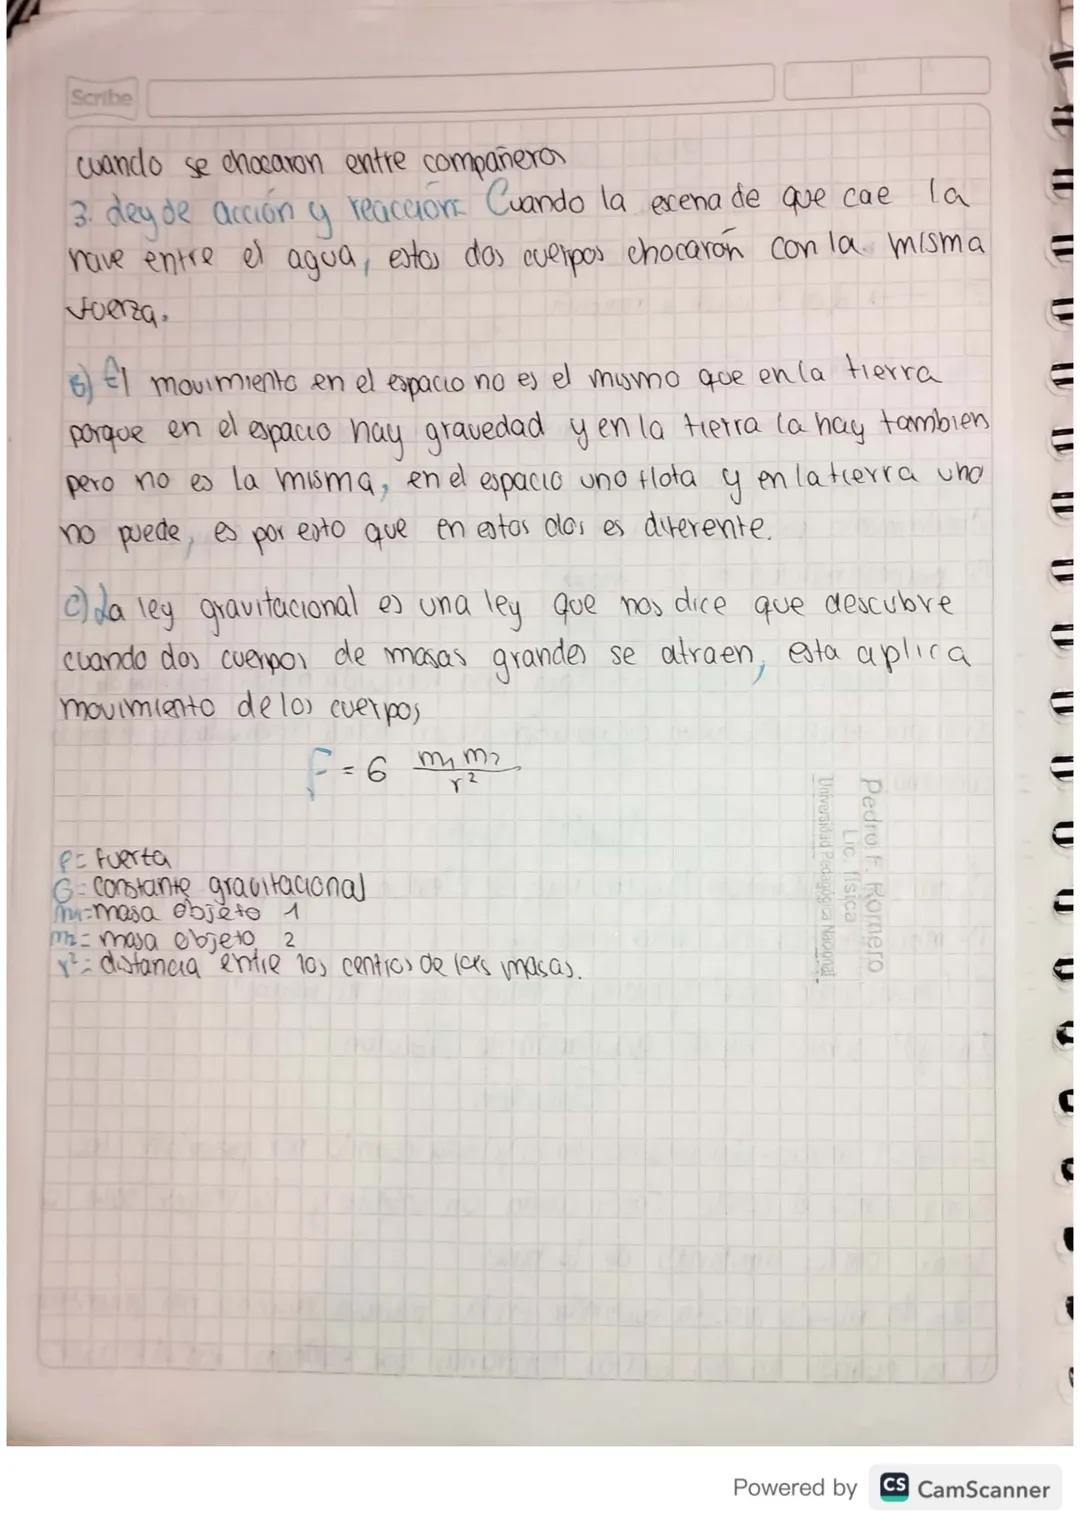 Scribe
cuando se chocaron entre compañeros
3. Ley de acción y reacción: Cuando la escena de que cae la
nave entre el agua, estos dos cuerpos chocarón con la misma
fuerza.
B) El movimiento en el espacio no es el mismo que en la tierra
porque en el espacio hay gravedad y en la tierra la hay tambien
pero no es la misma, en el espacio uno flota y en la tierra uno
no puede, es por esto que en estos dos es diferente.
C) La ley gravitacional es una ley que nos dice que descubre
cuando dos cuerpos de masas grandes se atraen, esta aplica
movimiento de los cuerpos
F = G m1 m2 / r²
F= fuerta
G= constante gravitacional
m1= masa objeto 1
m2= masa objeto 2
r²= distancia entre los centros de las masas.
Pedro F. Romero
Lic. física
Universidad Pedagógica Nacional
Powered by CS CamScanner